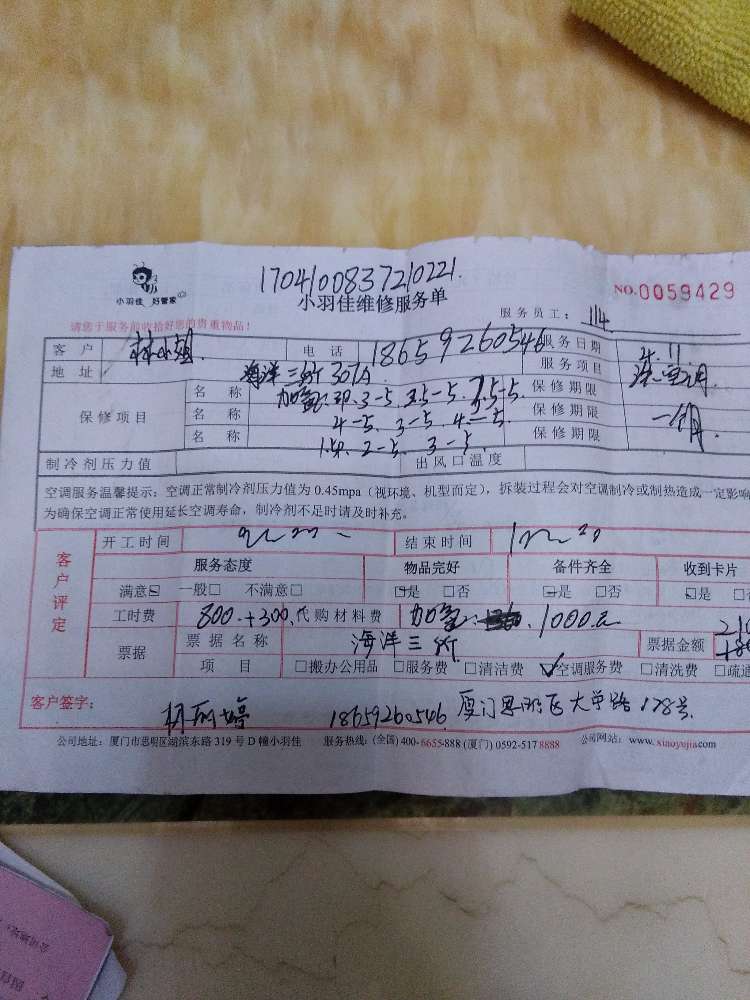 1704100837210221.
小羽佳 好管家
小羽佳维修服务单
NO.0059429
请您于服务前收拾好您的贵重物品！
服务员工： 114
客 户 林小姐. 电 话 18659260546 服务日期 4.11
地 址 海洋三所301A 服务项目
保修项目
名 称 保修期限
名 称 4-5. 3-5. 保修期限 一个月.
名 称 2-5. 3-5 保修期限
制冷剂压力值 出风口温度
空调服务温馨提示：空调正常制冷剂压力值为 0.45mpa（视环境、机型而定），拆装过程会对空调制冷或制热造成一定影响
为确保空调正常使用延长空调寿命，制冷剂不足时请及时补充。
客户评定
开工时间 结束时间
服务态度 物品完好 备件齐全 收到卡片
满意☑ 一般□ 不满意□ ☑是 □否 ☑是 □否 ☑是 □
工时费 800.+300. 代购材料费 加氟: 1000元
票据 票据名称 海洋三所 票据金额
项 目 □搬办公用品 □服务费 □清洁费 ☑空调服务费 □清洗费 □疏通
客户签字： 18659260546 厦门思明区大学路178号
公司地址：厦门市思明区湖滨东路 319 号 D 幢小羽佳 服务热线：(全国) 400-6655-888 (厦门) 0592-517 8888 公司网站：www.xiaoyujia.com